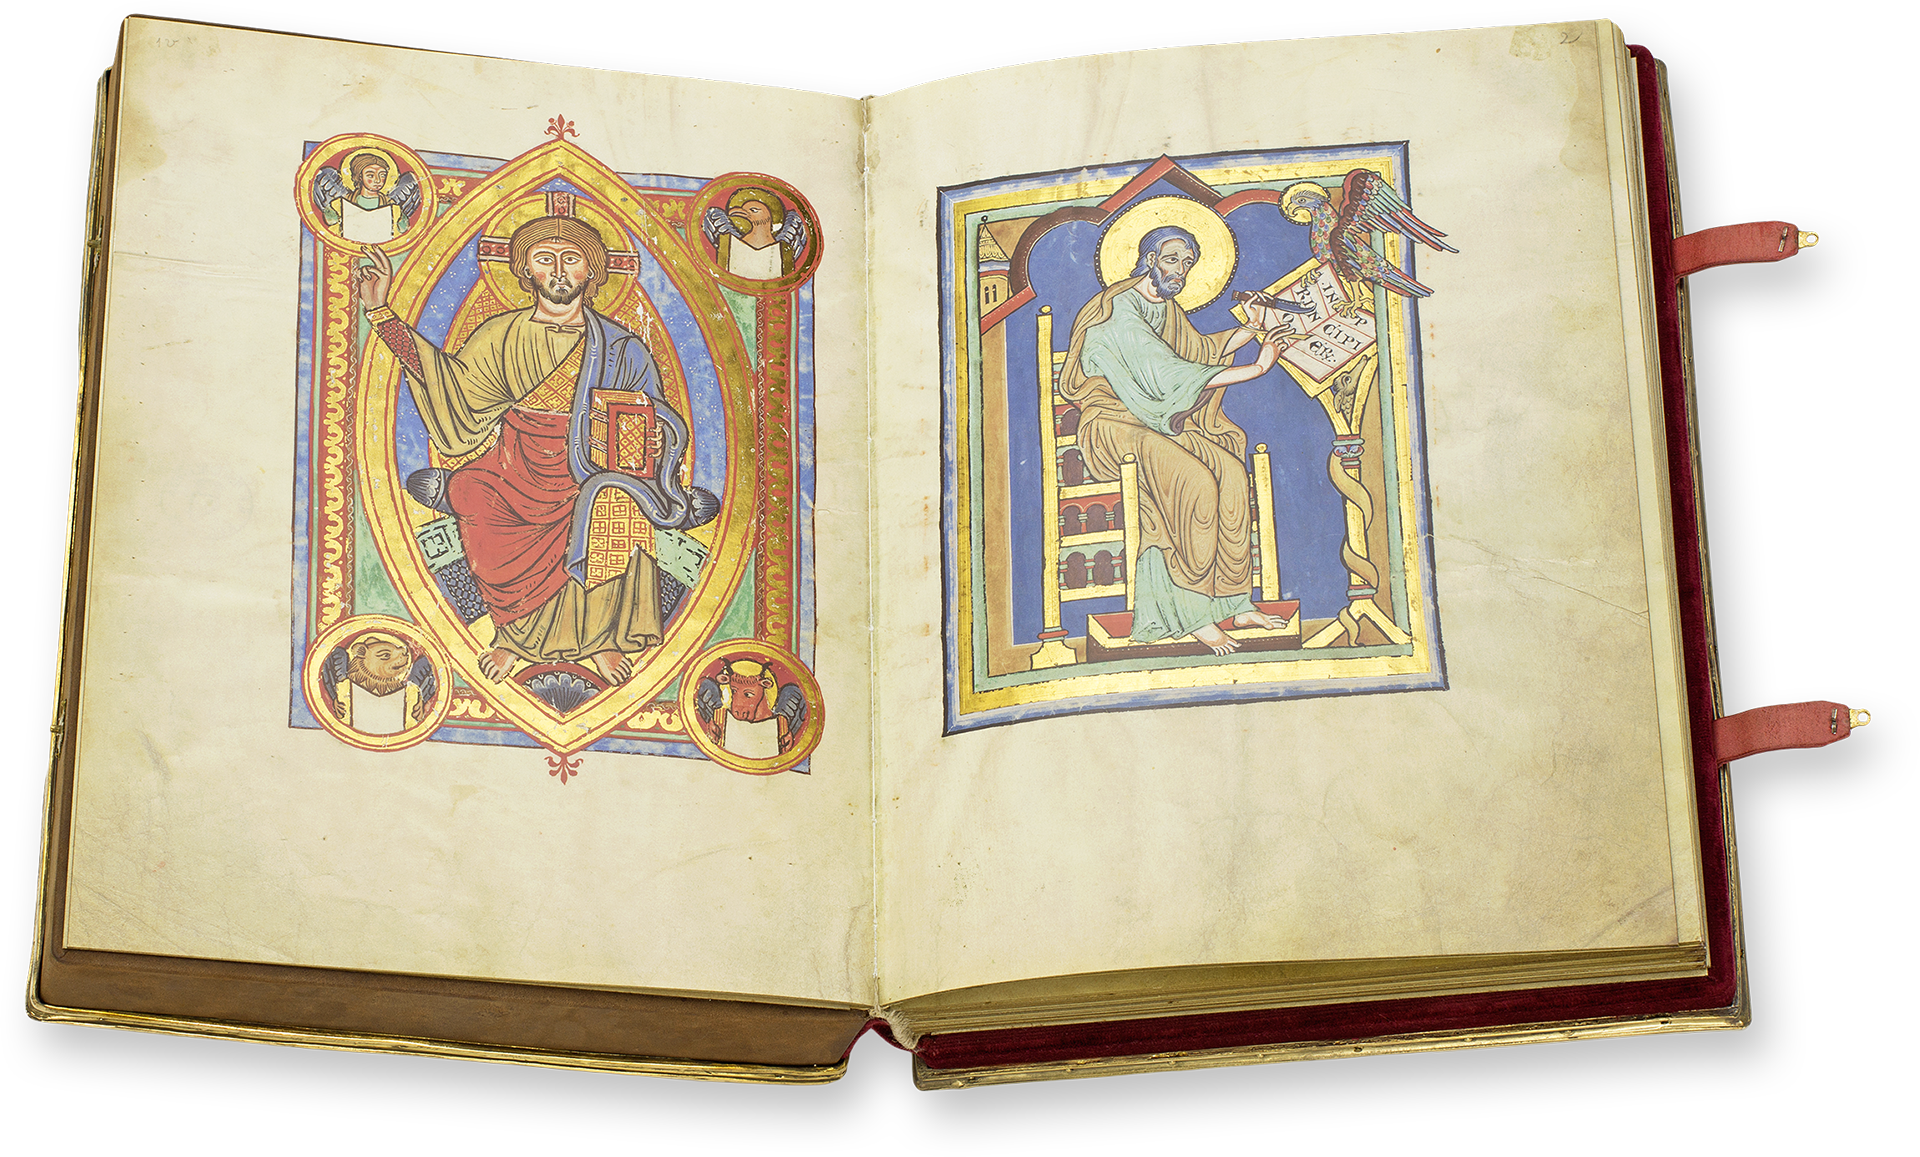 1v
2
IN P
RINCIPI
O ER: